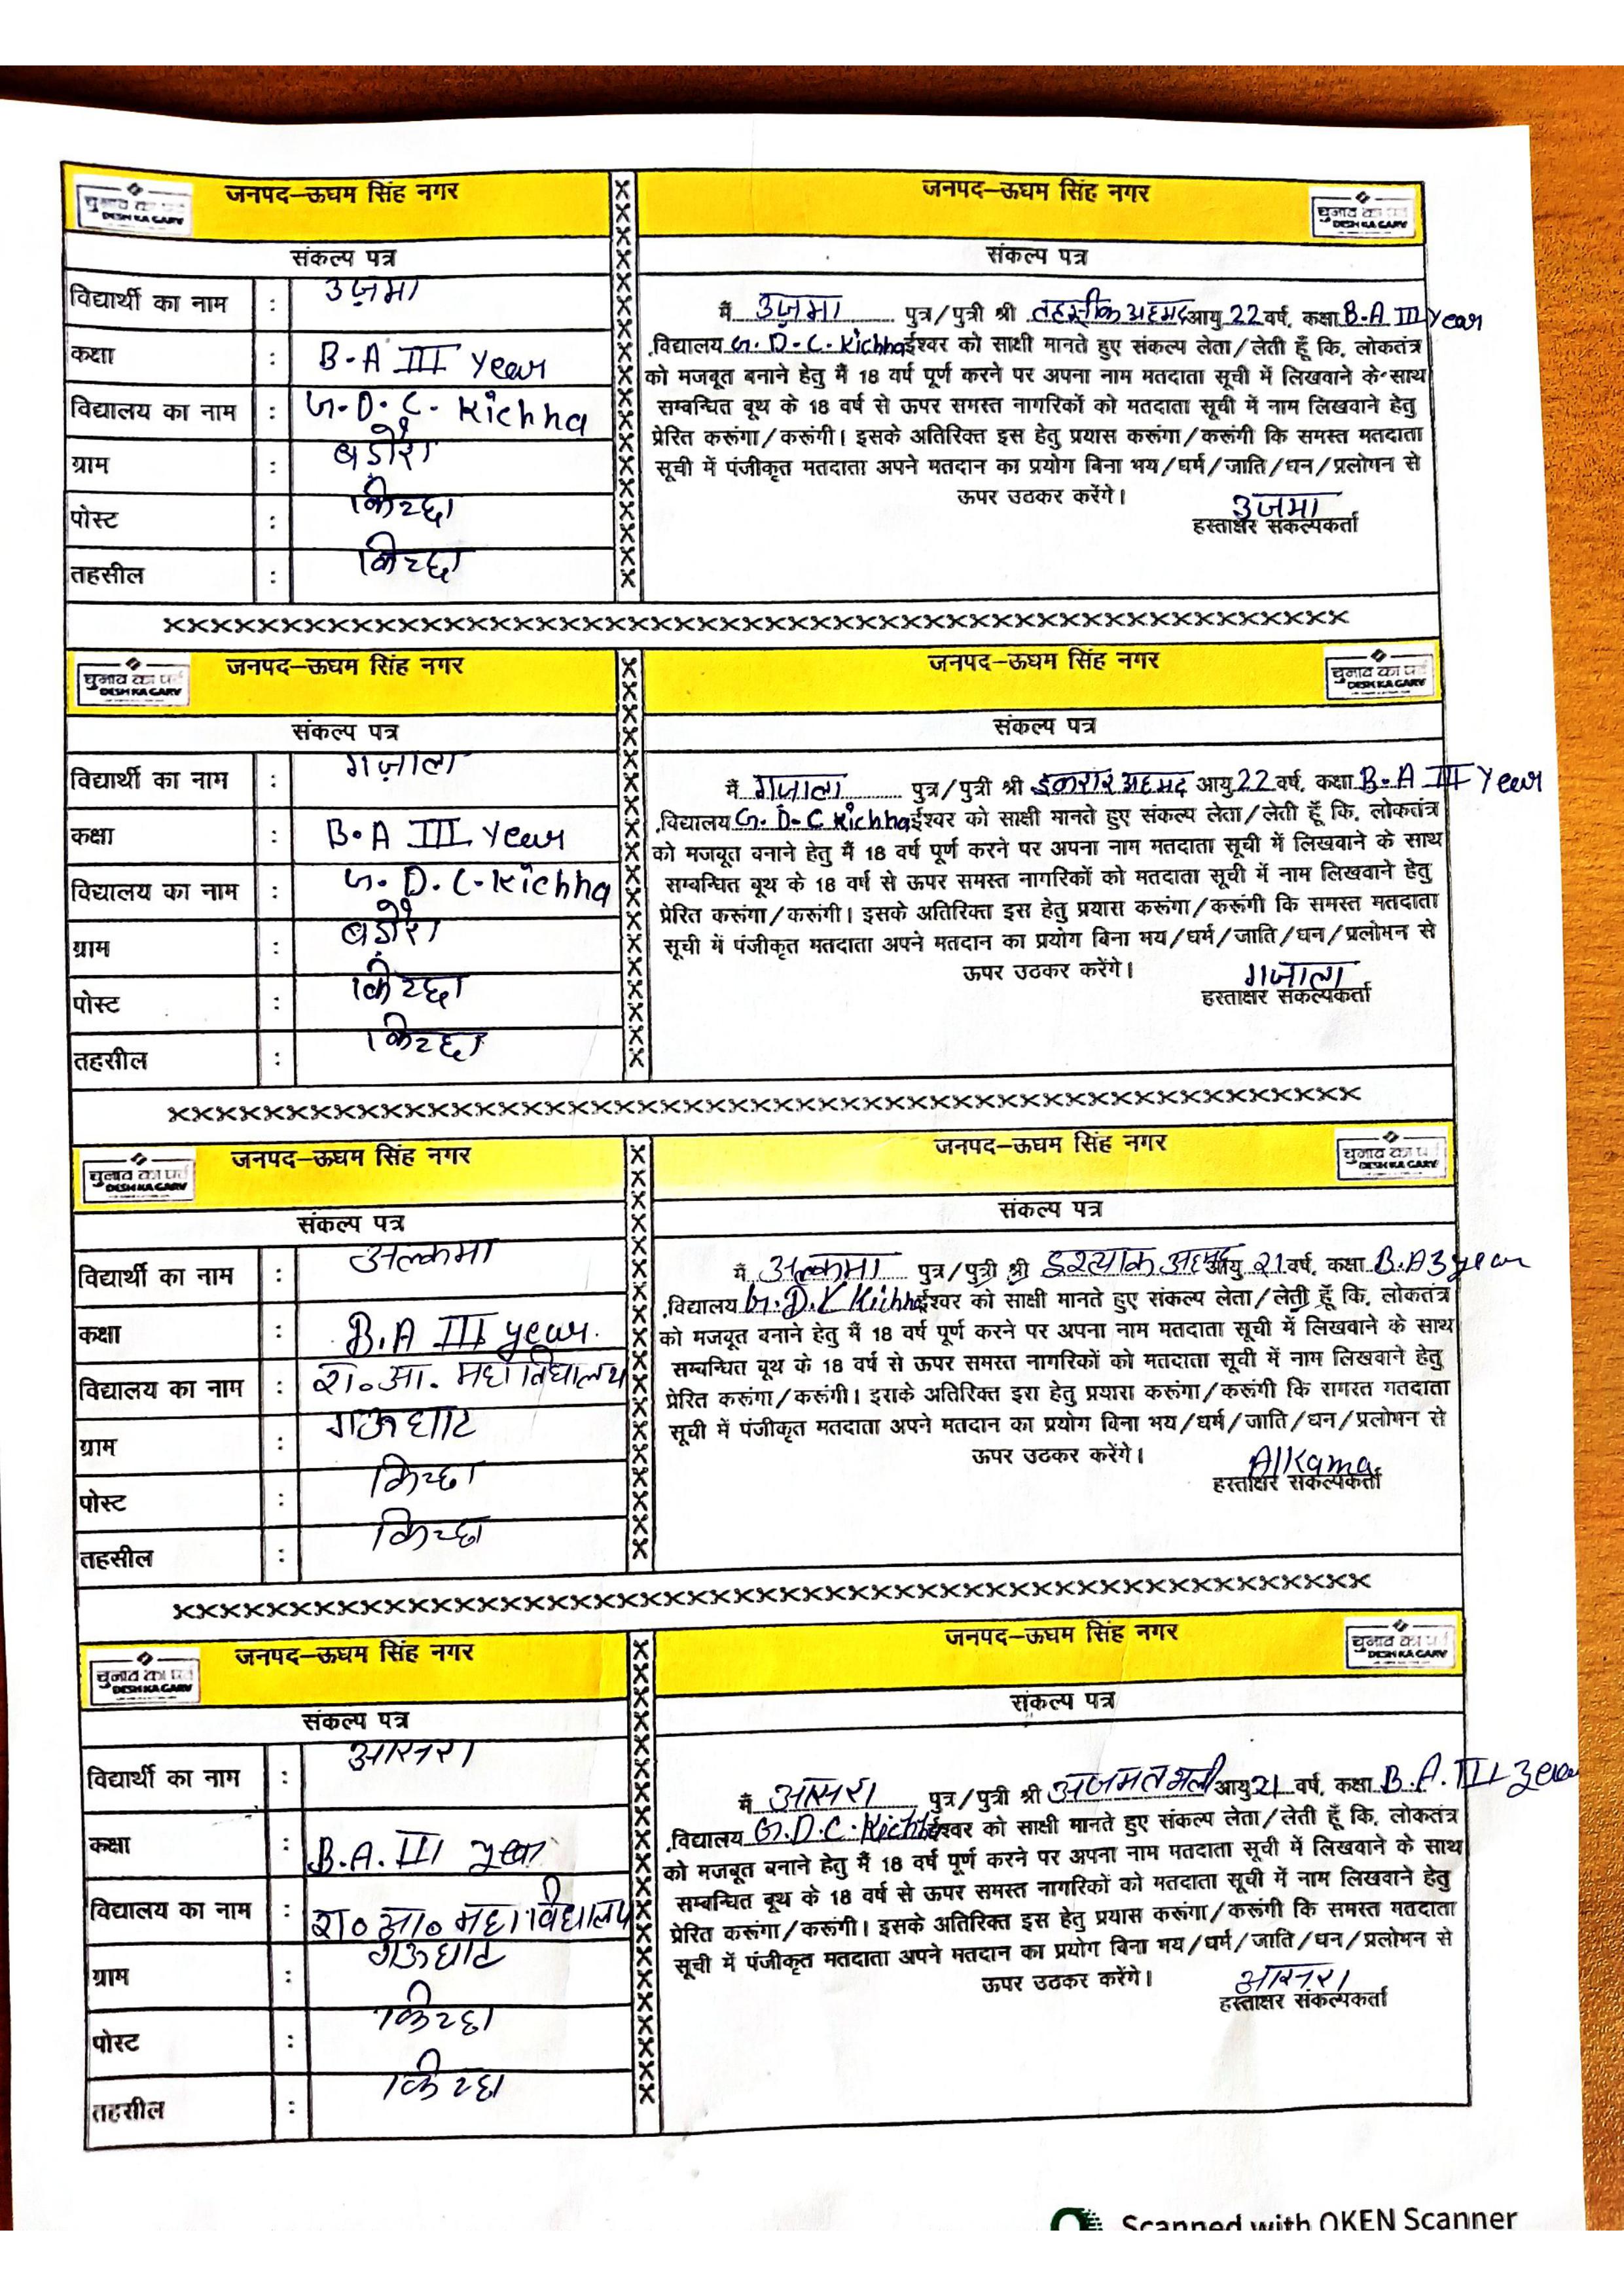 जनपद–ऊधम सिंह नगर
चुनाव का पर्व
DESH KA GARV
संकल्प पत्र
विद्यार्थी का नाम : उज़मा
कक्षा : B.A III Year
विद्यालय का नाम : G.D.C. Kichha
ग्राम :
पोस्ट : किच्छा
तहसील : किच्छा
जनपद–ऊधम सिंह नगर
चुनाव का पर्व
DESH KA GARV
संकल्प पत्र
मैं उज़मा पुत्र/पुत्री श्री अहमद आयु 22 वर्ष, कक्षा B.A III Year
विद्यालय G.D.C. Kichha ईश्वर को साक्षी मानते हुए संकल्प लेता/लेती हूँ कि, लोकतंत्र
को मजबूत बनाने हेतु मैं 18 वर्ष पूर्ण करने पर अपना नाम मतदाता सूची में लिखवाने के साथ
सम्बन्धित बूथ के 18 वर्ष से ऊपर समस्त नागरिकों को मतदाता सूची में नाम लिखवाने हेतु
प्रेरित करूंगा/करूंगी। इसके अतिरिक्त इस हेतु प्रयास करूंगा/करूंगी कि समस्त मतदाता
सूची में पंजीकृत मतदाता अपने मतदान का प्रयोग बिना भय/धर्म/जाति/धन/प्रलोभन से
ऊपर उठकर करेंगे।
उजमा
हस्ताक्षर संकल्पकर्ता
जनपद–ऊधम सिंह नगर
चुनाव का पर्व
DESH KA GARV
संकल्प पत्र
विद्यार्थी का नाम : गज़ाला
कक्षा : B.A III Year
विद्यालय का नाम : G.D.C. Kichha
ग्राम :
पोस्ट : किच्छा
तहसील : किच्छा
जनपद–ऊधम सिंह नगर
चुनाव का पर्व
DESH KA GARV
संकल्प पत्र
मैं गजाला पुत्र/पुत्री श्री इकरार अहमद आयु 22 वर्ष, कक्षा B.A III Year
विद्यालय G.D.C Kichha ईश्वर को साक्षी मानते हुए संकल्प लेता/लेती हूँ कि, लोकतंत्र
को मजबूत बनाने हेतु मैं 18 वर्ष पूर्ण करने पर अपना नाम मतदाता सूची में लिखवाने के साथ
सम्बन्धित बूथ के 18 वर्ष से ऊपर समस्त नागरिकों को मतदाता सूची में नाम लिखवाने हेतु
प्रेरित करूंगा/करूंगी। इसके अतिरिक्त इस हेतु प्रयास करूंगा/करूंगी कि समस्त मतदाता
सूची में पंजीकृत मतदाता अपने मतदान का प्रयोग बिना भय/धर्म/जाति/धन/प्रलोभन से
ऊपर उठकर करेंगे।
गजाला
हस्ताक्षर संकल्पकर्ता
जनपद–ऊधम सिंह नगर
चुनाव का पर्व
DESH KA GARV
संकल्प पत्र
विद्यार्थी का नाम : अल्कमा
कक्षा : B.A III year.
विद्यालय का नाम : रा०आ. महाविद्यालय
ग्राम : गऊघाट
पोस्ट : किच्छा
तहसील : किच्छा
जनपद–ऊधम सिंह नगर
चुनाव का पर्व
DESH KA GARV
संकल्प पत्र
मैं अल्कमा पुत्र/पुत्री श्री इश्त्याक अहमद आयु 21 वर्ष, कक्षा B.A 3 year
विद्यालय G.D.C Kichha ईश्वर को साक्षी मानते हुए संकल्प लेता/लेती हूँ कि, लोकतंत्र
को मजबूत बनाने हेतु मैं 18 वर्ष पूर्ण करने पर अपना नाम मतदाता सूची में लिखवाने के साथ
सम्बन्धित बूथ के 18 वर्ष से ऊपर समस्त नागरिकों को मतदाता सूची में नाम लिखवाने हेतु
प्रेरित करूंगा/करूंगी। इसके अतिरिक्त इस हेतु प्रयास करूंगा/करूंगी कि समस्त मतदाता
सूची में पंजीकृत मतदाता अपने मतदान का प्रयोग बिना भय/धर्म/जाति/धन/प्रलोभन से
ऊपर उठकर करेंगे।
Alkama
हस्ताक्षर संकल्पकर्ता
जनपद–ऊधम सिंह नगर
चुनाव का पर्व
DESH KA GARV
संकल्प पत्र
विद्यार्थी का नाम : आसरा
कक्षा : B.A. III year
विद्यालय का नाम : रा० आ० महाविद्यालय
ग्राम : गऊघाट
पोस्ट : किच्छा
तहसील : किच्छा
जनपद–ऊधम सिंह नगर
चुनाव का पर्व
DESH KA GARV
संकल्प पत्र
मैं आसरा पुत्र/पुत्री श्री अजमत अली आयु 21 वर्ष, कक्षा B.A. III year
विद्यालय G.D.C. Kichha ईश्वर को साक्षी मानते हुए संकल्प लेता/लेती हूँ कि, लोकतंत्र
को मजबूत बनाने हेतु मैं 18 वर्ष पूर्ण करने पर अपना नाम मतदाता सूची में लिखवाने के साथ
सम्बन्धित बूथ के 18 वर्ष से ऊपर समस्त नागरिकों को मतदाता सूची में नाम लिखवाने हेतु
प्रेरित करूंगा/करूंगी। इसके अतिरिक्त इस हेतु प्रयास करूंगा/करूंगी कि समस्त मतदाता
सूची में पंजीकृत मतदाता अपने मतदान का प्रयोग बिना भय/धर्म/जाति/धन/प्रलोभन से
ऊपर उठकर करेंगे।
आसरा
हस्ताक्षर संकल्पकर्ता
Scanned with OKEN Scanner